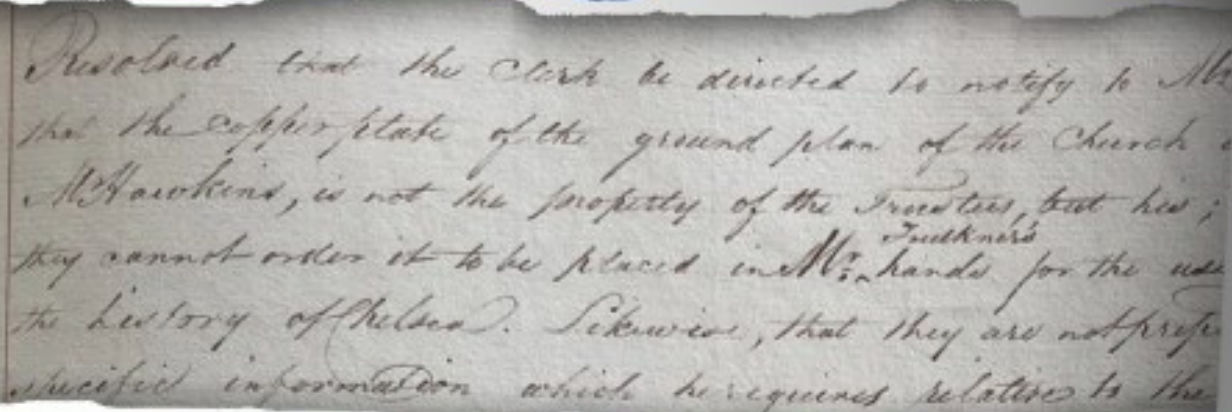 Resolved that the Clerk be directed to notify to
that the copper plate of the ground plan of the Church
Mr Hawkins, is not the property of the Trustees, but his;
Faulkner's
they cannot order it to be placed in Mr. ‸ hands for the use
the history of Chelsea. Likewise, that they are not prep
specific information which he requires relative to the